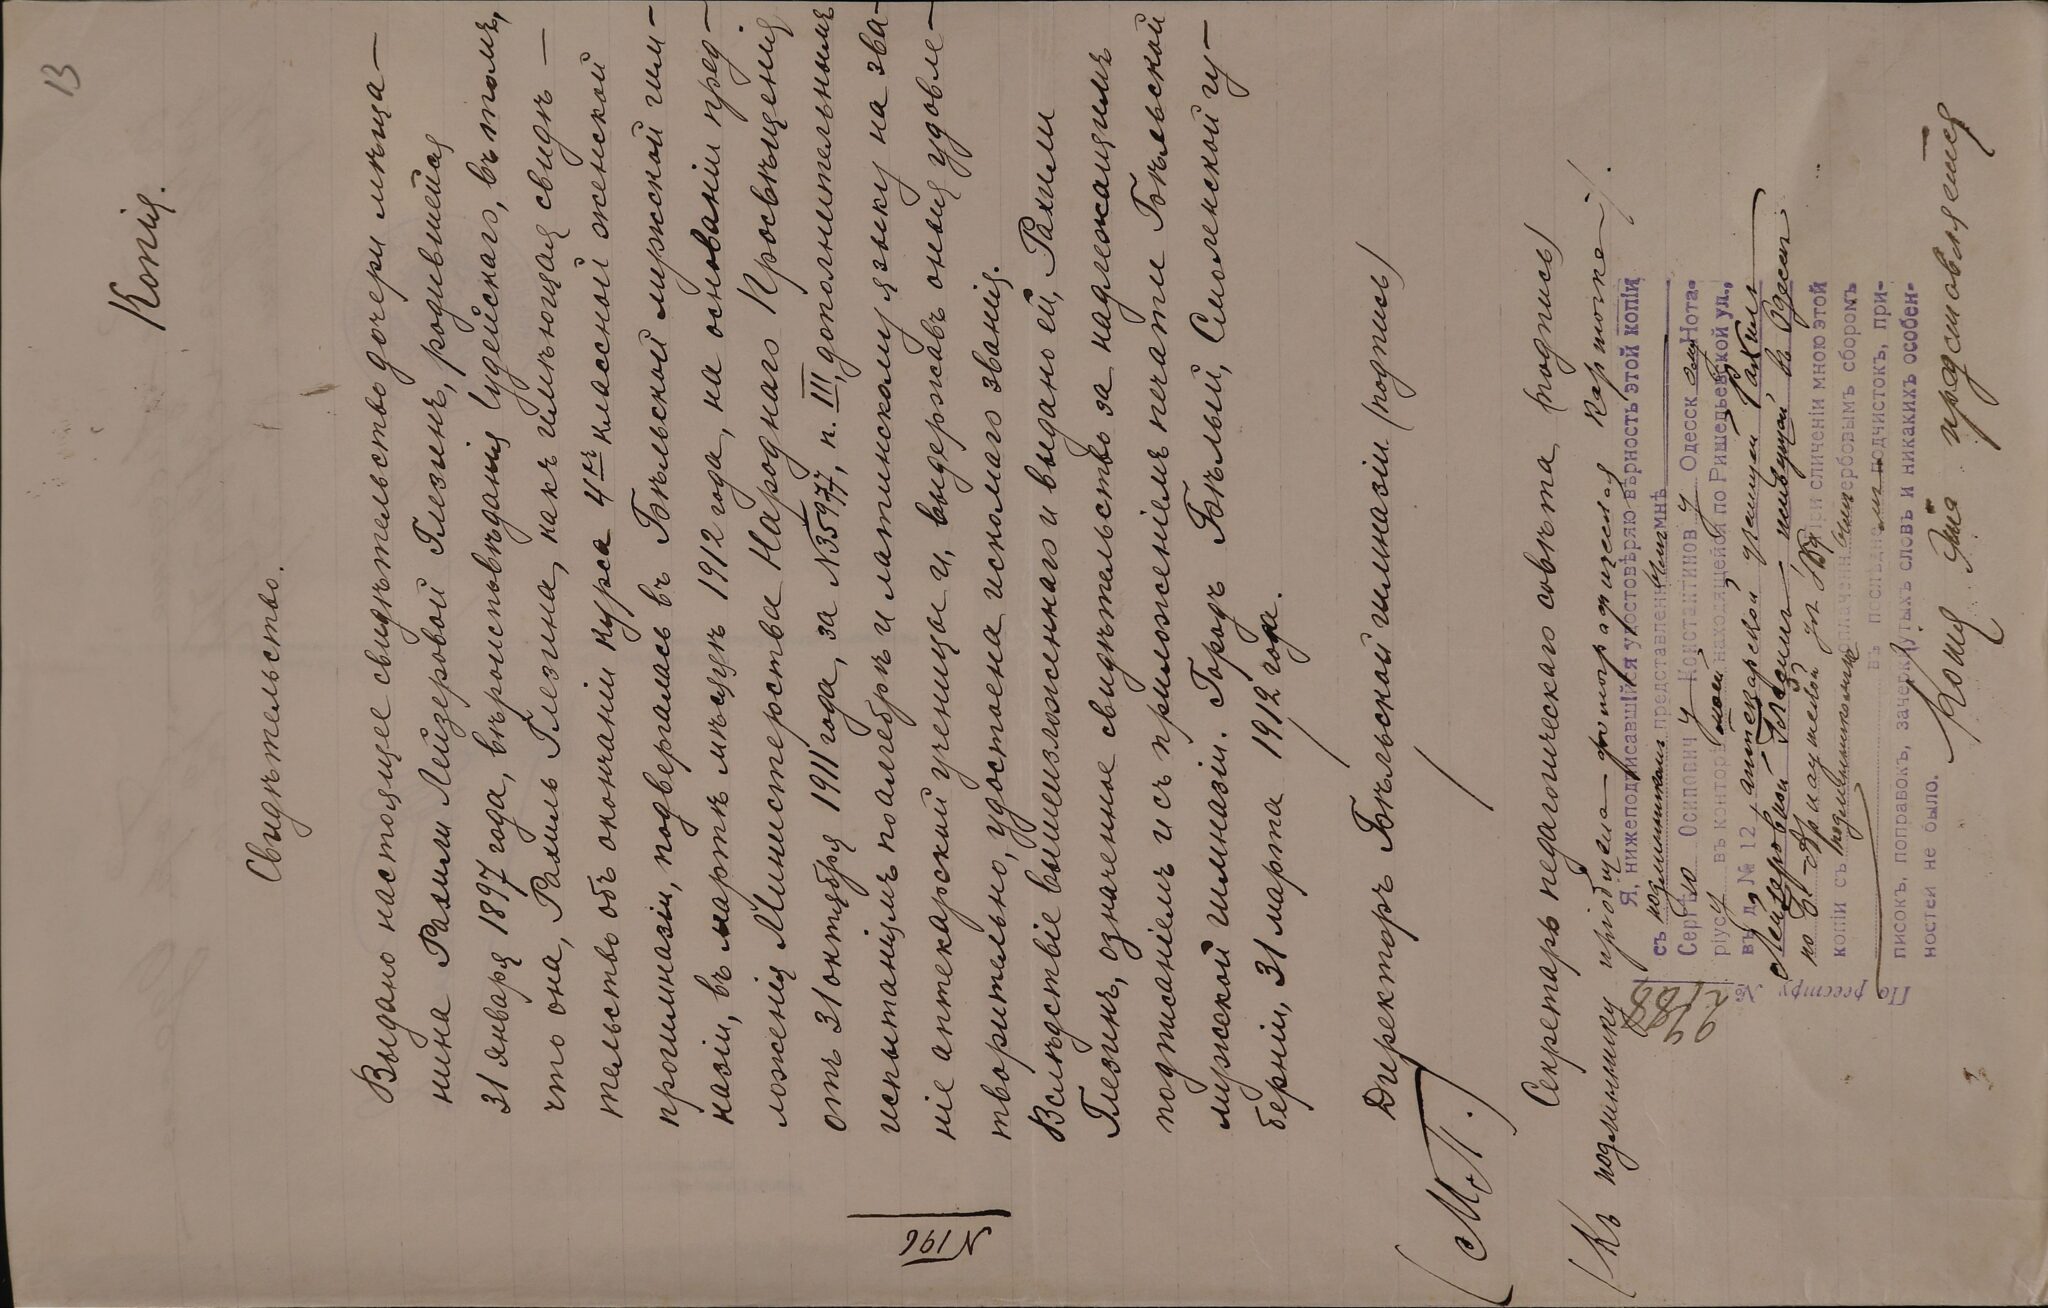 13
Копія.
Свидѣтельство.
Выдано настоящее свидѣтельство дочери мѣща-
нина Рахили Лейзеровой Глезинъ, родившейся
31 января 1897 года, вѣроисповѣданія Іудейскаго, въ томъ,
что она, Рахиль Глезина, какъ имѣющая свидѣ-
тельство объ окончаніи курса 4хъ классной женской
прогимназіи, подвергалась въ Бѣльской мужской гим-
назіи, въ мартѣ мѣсяцѣ 1912 года, на основаніи пред-
ложенія Министерства Народнаго Просвѣщенія
отъ 31 октября 1911 года, за №35977, п. III, дополнительнымъ
испытаніямъ по алгебрѣ и латинскому языку на зва-
ніе аптекарской ученицы и, выдержавъ оныя удовле-
творительно, удостоена искомаго званія.
Вслѣдствіе вышеизложеннаго и выдано ей, Рахили
Глезинъ, означенное свидѣтельство за надлежащимъ
подписаніемъ и съ приложеніемъ печати Бѣльской
мужской гимназіи. Городъ Бѣлый, Смоленской гу-
берніи, 31 марта 1912 года.
№ 196
Директоръ Бѣльской гимназіи (подпись)
(М.П.)
Секретарь педагогическаго совѣта (подпись)
(Къ подлиннику пріобщена фотографическая карточка).
Я, нижеподписавшійся удостовѣряю вѣрность этой копіи
съ подлинникомъ представленнымъ мнѣ
Сергѣю Осиповичу Константинову Одесскому Нота-
ріусу въ конторѣ моей находящейся по Ришельевской ул.,
въ д. № 12, аптекарской ученицей Рахилью
Лейзеровной Глезинъ живущей въ Одессѣ
по Б-Арнаутской ул. При сличеніи мною этой
копіи съ подлинникомъ оплаченнымъ гербовымъ сборомъ
въ послѣднемъ подчистокъ, при-
писокъ, поправокъ, зачеркнутыхъ словъ и никакихъ особен-
ностей не было.
По реестру №
Копія эта предстовляется